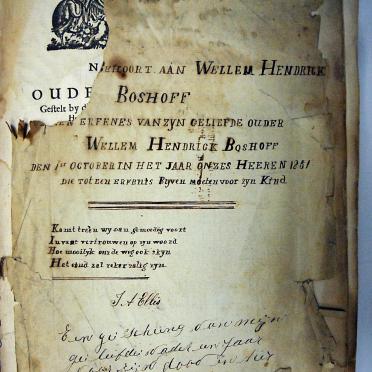 OUDE
Gestelt by d
BEHOORT AAN WELLEM HENDRICK
BOSHOFF
TER ERFENES VAN ZYN GELIEFDE OUDER
WELLEM HENDRICK BOSHOFF
DEN 1st OCTOBER IN HET JAAR ONZES HEEREN 1851
DIE TOT EEN ERFENIS BLYVEN MOETEN VOOR ZYN KIND
Komt treen wy dan gemoedig voort
In vast vertrouwen op zyn woord
Hoe moeilyk ons de weg ook schyn
Het eind zal zeker zalig zyn.
J. A Ellis
Een geschenk van mijn
geliefde vader en jaar
voor zijn dood en